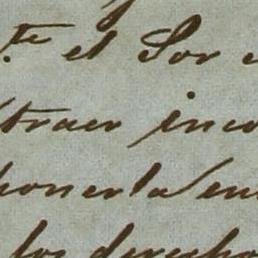 te el Sor
traer inco
poner la en
los derecho